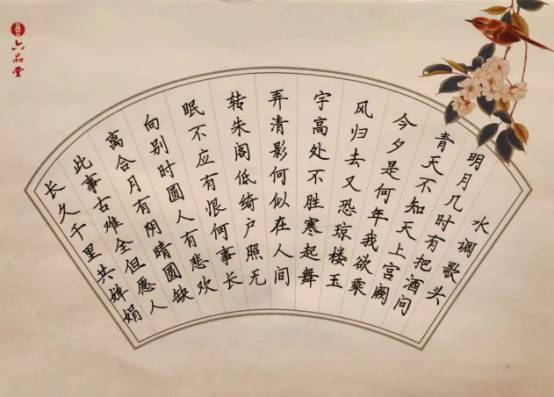 六品堂
水调歌头
明月几时有把酒问
青天不知天上宫阙
今夕是何年我欲乘
风归去又恐琼楼玉
宇高处不胜寒起舞
弄清影何似在人间
转朱阁低绮户照无
眠不应有恨何事长
向别时圆人有悲欢
离合月有阴晴圆缺
此事古难全但愿人
长久千里共婵娟